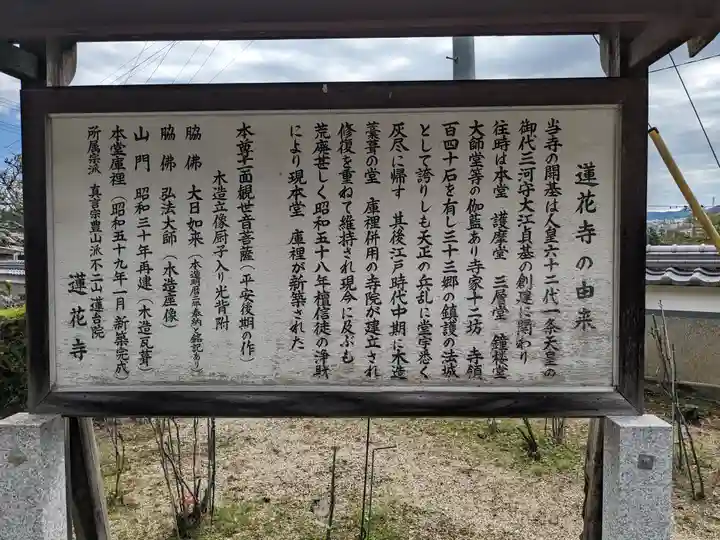 蓮花寺の由来
当寺の開基は人皇六十二代一条天皇の
御代三河守大江貞基の創建に関わり
往時は本堂 護摩堂 三層堂 鐘楼堂
大師堂等の伽藍あり寺家十二坊 寺領
百四十石を有し三十三郷の鎮護の法城
として誇りしも天正の兵乱に堂宇悉く
灰尽に帰す 其後江戸時代中期に木造
藁葺の堂 庫裡併用の寺院が建立され
修復を重ねて維持され現今に及ぶも
荒廃甚しく昭和五十八年檀信徒の浄財
により現本堂 庫裡が新築された
本尊十一面観世音菩薩(平安後期の作)
木造立像厨子入り光背附
脇佛 大日如来(木造明暦二年奉納と銘記あり)
脇佛 弘法大師(木造座像)
山門 昭和三十年再建(木造瓦葺)
本堂庫裡(昭和五十九年一月新築完成)
所属宗派 真言宗豊山派不二山蓮台院
蓮花寺